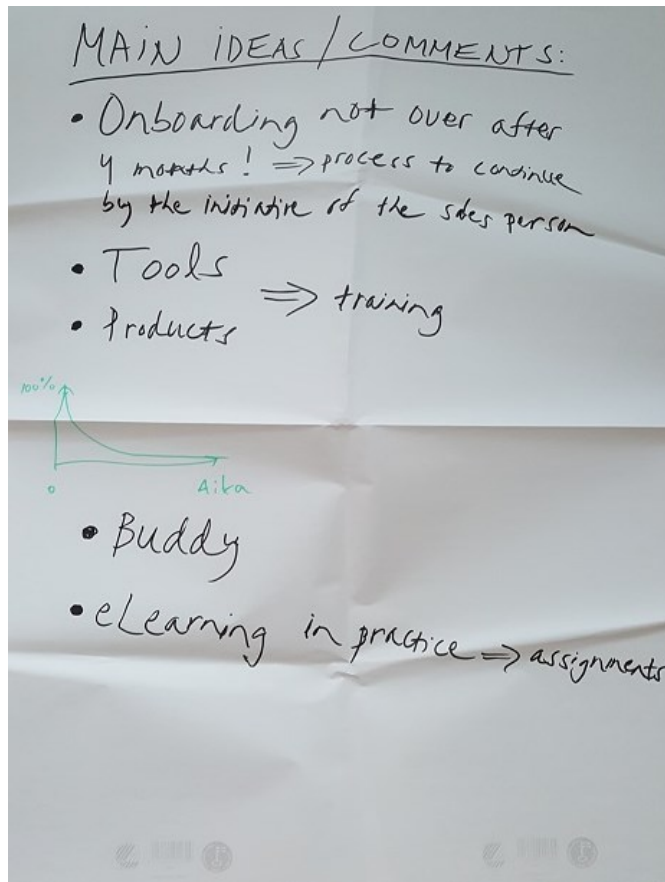 MAIN IDEAS / COMMENTS:
• Onboarding not over after
4 months! => process to continue
by the initiative of the sales person
• Tools
=> training
• Products
100%
0
Aika
• Buddy
• eLearning in practice => assignments